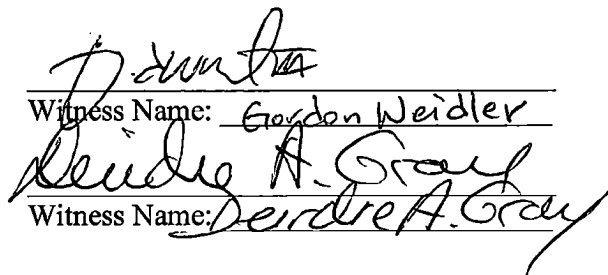 Witness Name: Gordon Weidler
Deirdre A. Gray
Witness Name: Deirdre A. Gray